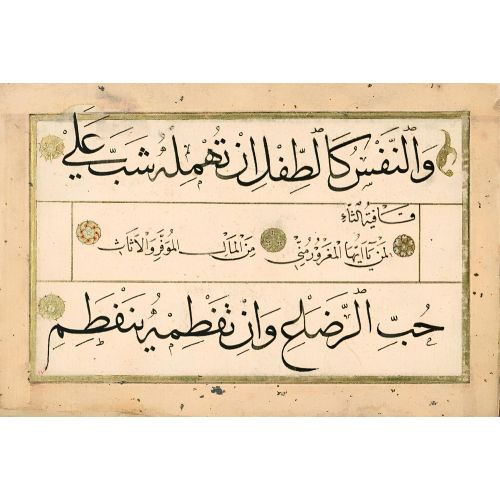 وَالنَّفْسُ كَالطِّفْلِ اِنْ تُهْمِلْهُ شَبَّ عَلٰي
قَافِيَةُ الثَّاءِ
لِمَنْ يَا اَيُّهَا الْمَغْرُورُ تَحْوِي مِنَ الْمَالِ الْمُوَفَّرِ وَالْاَثَاثِ
حُبِّ الرَّضَاعِ وَاِنْ تَفْطِمْهُ يَنْفَطِمِ